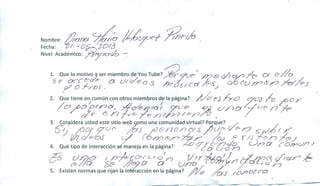 Nombre: Diana Maria Velasquez Pinedo
Fecha: 21-05-2013
Nivel Académico: Pregrado -
1. Que le motivo a ser miembro de You Tube? Porque mediante a ello
se accede a videos musicales, documentales
y otros.
2. Que tiene en común con otros miembros de la página? Nuestro gusto por
la página, Además que es una fuente
de entretenimiento.
3. Considera usted este sitio web como una comunidad virtual? Porque?
Si, porque las personas pueden subir
videos y comentar los existentes
4. Qué tipo de interacción se maneja en la página? logrando una comuni
cación
Es una interacción virtual, mediante
ella se llega a una comunicación
5. Existen normas que rijan la interacción en la página? No las conozco.